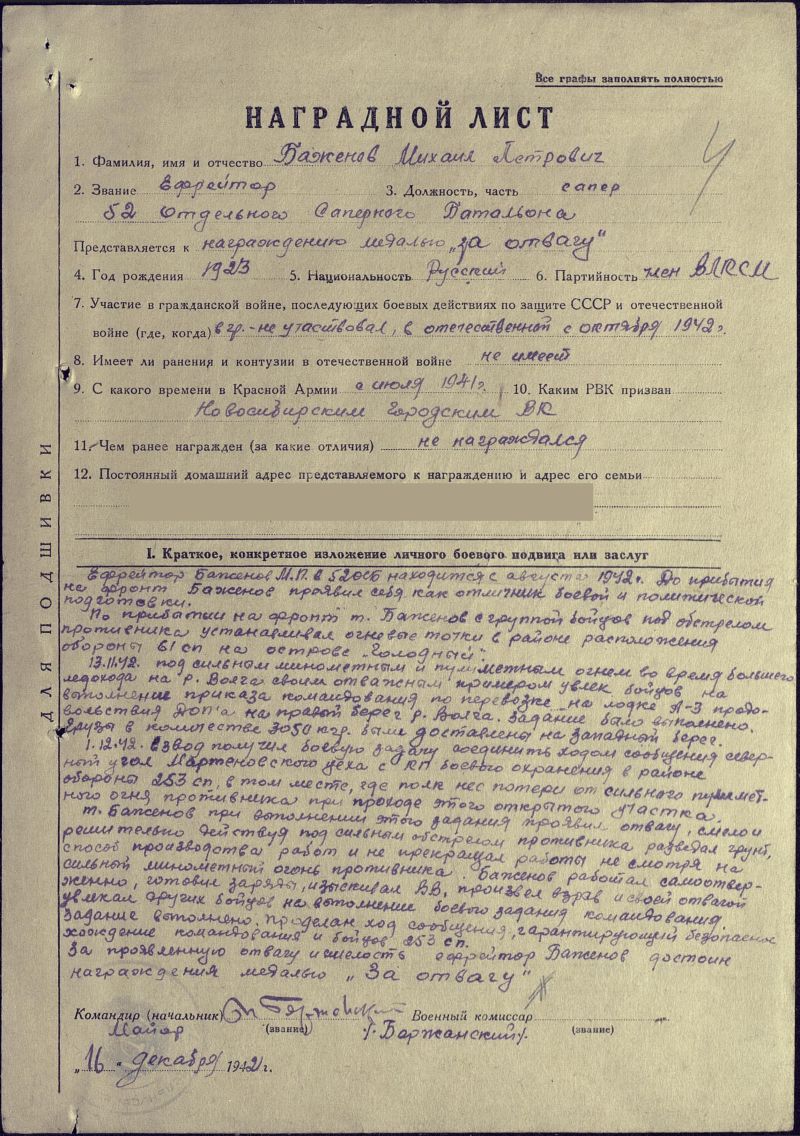 Все графы заполнять полностью
НАГРАДНОЙ ЛИСТ
1. Фамилия, имя и отчество Баженов Михаил Петрович
2. Звание Ефрейтор 3. Должность, часть сапер
52 Отдельного Саперного Батальона
Представляется к награждению медалью „за отвагу"
4. Год рождения 1923 5. Национальность Русский 6. Партийность член ВЛКСМ
7. Участие в гражданской войне, последующих боевых действиях по защите СССР и отечественной
войне (где, когда) в гр.- не участвовал, в отечественной с октября 1942 г.
8. Имеет ли ранения и контузии в отечественной войне не имеет
9. С какого времени в Красной Армии с июля 1941 г. 10. Каким РВК призван
Новосибирским Городским ВК
11. Чем ранее награжден (за какие отличия) не награждался
12. Постоянный домашний адрес представляемого к награждению и адрес его семьи
ДЛЯ ПОДШИВКИ
I. Краткое, конкретное изложение личного боевого подвига или заслуг
Ефрейтор Баженов М.П. в 52 ОСБ находится с августа 1942 г. До прибытия
на фронт Баженов проявил себя как отличник боевой и политической
подготовки.
По прибытии на фронт т. Баженов с группой бойцов под обстрелом
противника устанавливал огневые точки в районе расположения
обороны 61 сп на острове „Голодный".
13.11.42. под сильным минометным и пулеметным огнем во время большего
ледохода на р. Волга своим отважным примером увлек бойцов на
выполнение приказа командования по перевозке на лодке А-3 продо-
вольствия ДОП'а на правой берег р. Волга. Задание было выполнено.
Грузы в количестве 3050 кгр. были доставлены на западный берег.
1.12.42. взвод получил боевую задачу соединить ходом сообщения север-
ный угол Мартеновского цеха с КП боевого охранения в районе
обороны 253 сп, в том месте, где полк нес потери от сильного пулемет-
ного огня противника при проходе этого открытого участка.
т. Баженов при выполнении этого задания проявил отвагу, смело и
решительно действуя под сильным обстрелом противника разведал грунт,
способ производства работ и не прекращал работы не смотря на
сильный минометный огонь противника. Баженов работал самоотвер-
женно, готовил заряды, изыскивал ВВ, произвел взрыв и своей отвагой
увлекал других бойцов на выполнение боевого задания командования.
Задание выполнено, проделан ход сообщения, гарантирующий безопасное
хождение командования и бойцов 253 сп.
За проявленную отвагу и смелость ефрейтор Баженов достоин
награждения медалью „За отвагу"
Командир (начальник) Военный комиссар
Майор (звание) /Боржанский/. (звание)
„16" декабря 1942 г.